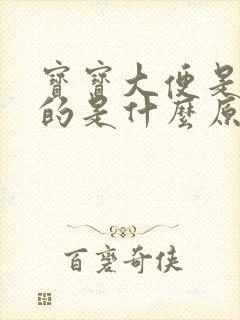 寶寶大便是
的是什麼原
百裏奇俠